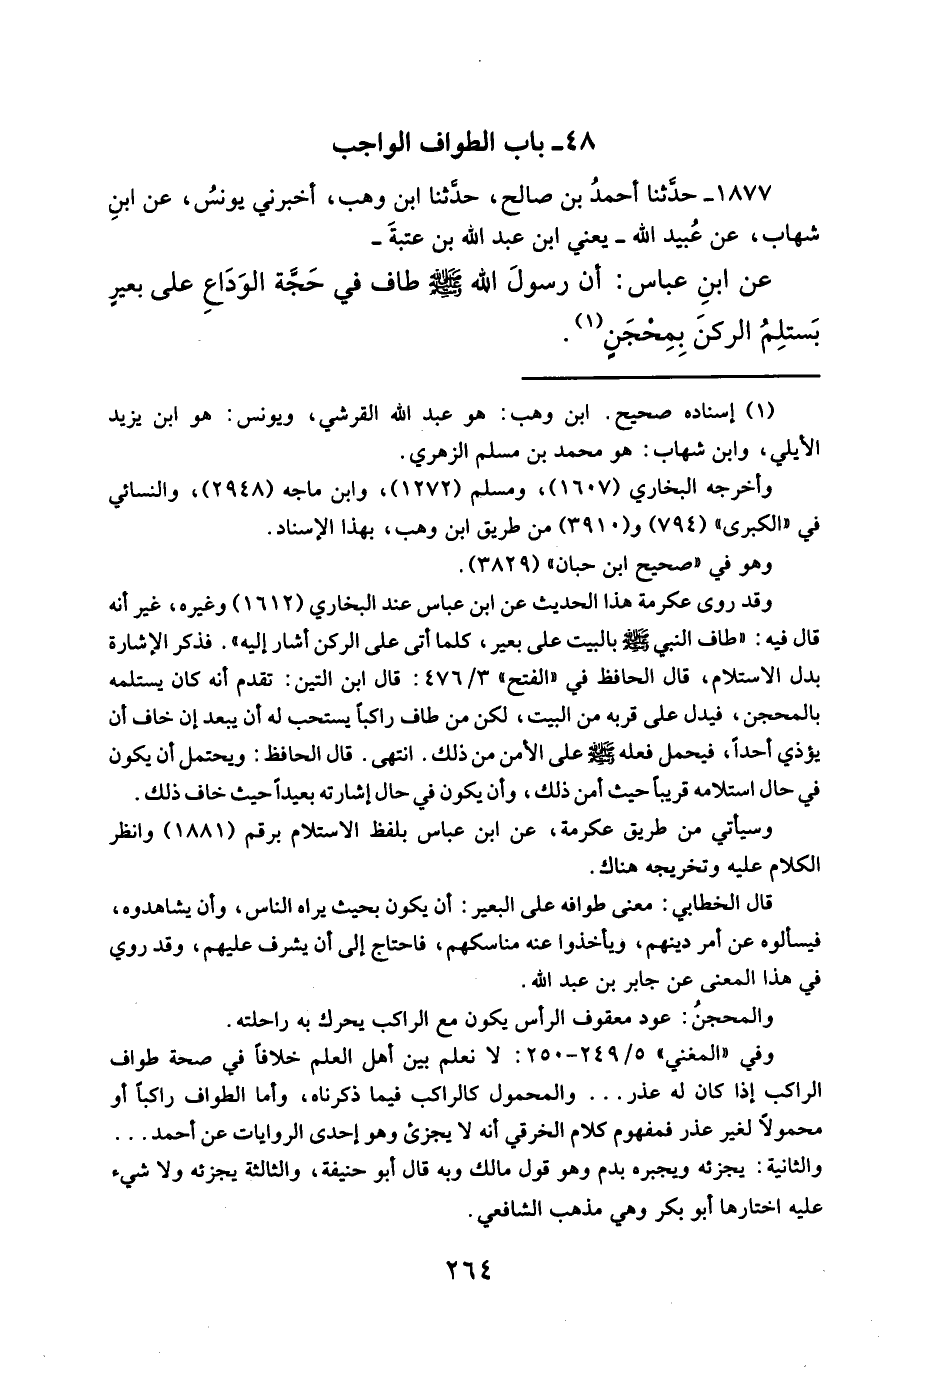 ٤٨ـ باب الطواف الواجب
١٨٧٧ـ حدَّثنا أحمدُ بن صالح، حدَّثنا ابن وهب، أخبرني يونسُ، عن ابنِ
شهاب، عن عُبيد الله ـ يعني ابن عبد الله بن عتبةَ ـ
عن ابنِ عباس: أن رسولَ الله ﷺ طاف في حَجَّة الوَدَاعِ على بعيرٍ
يَستلِمُ الركنَ بِمِحْجَنٍ(١).
(١) إسناده صحيح. ابن وهب: هو عبد الله القرشي، ويونس: هو ابن يزيد
الأيلي، وابن شهاب: هو محمد بن مسلم الزهري.
وأخرجه البخاري (١٦٠٧)، ومسلم (١٢٧٢)، وابن ماجه (٢٩٤٨)، والنسائي
في «الكبرى» (٧٩٤) و(٣٩١٠) من طريق ابن وهب، بهذا الإسناد.
وهو في «صحيح ابن حبان» (٣٨٢٩).
وقد روى عكرمة هذا الحديث عن ابن عباس عند البخاري (١٦١٢) وغيره، غير أنه
قال فيه: «طاف النبي ﷺ بالبيت على بعير، كلما أتى على الركن أشار إليه». فذكر الإشارة
بدل الاستلام، قال الحافظ في «الفتح» ٣/ ٤٧٦: قال ابن التين: تقدم أنه كان يستلمه
بالمحجن، فيدل على قربه من البيت، لكن من طاف راكباً يستحب له أن يبعد إن خاف أن
يؤذي أحداً، فيحمل فعله ﷺ على الأمن من ذلك. انتهى. قال الحافظ: ويحتمل أن يكون
في حال استلامه قريباً حيث أمن ذلك، وأن يكون في حال إشارته بعيداً حيث خاف ذلك.
وسيأتي من طريق عكرمة، عن ابن عباس بلفظ الاستلام برقم (١٨٨١) وانظر
الكلام عليه وتخريجه هناك.
قال الخطابي: معنى طوافه على البعير: أن يكون بحيث يراه الناس، وأن يشاهدوه،
فيسألوه عن أمر دينهم، ويأخذوا عنه مناسكهم، فاحتاج إلى أن يشرف عليهم، وقد روي
في هذا المعنى عن جابر بن عبد الله.
والمحجنُ: عود معقوف الرأس يكون مع الراكب يحرك به راحلته.
وفي «المغني» ٥/ ٢٤٩-٢٥٠: لا نعلم بين أهل العلم خلافاً في صحة طواف
الراكب إذا كان له عذر... والمحمول كالراكب فيما ذكرناه، وأما الطواف راكباً أو
محمولاً لغير عذر فمفهوم كلام الخرقي أنه لا يجزئ وهو إحدى الروايات عن أحمد...
والثانية: يجزئه ويجبره بدم وهو قول مالك وبه قال أبو حنيفة، والثالثة يجزئه ولا شيء
عليه اختارها أبو بكر وهي مذهب الشافعي.
٢٦٤